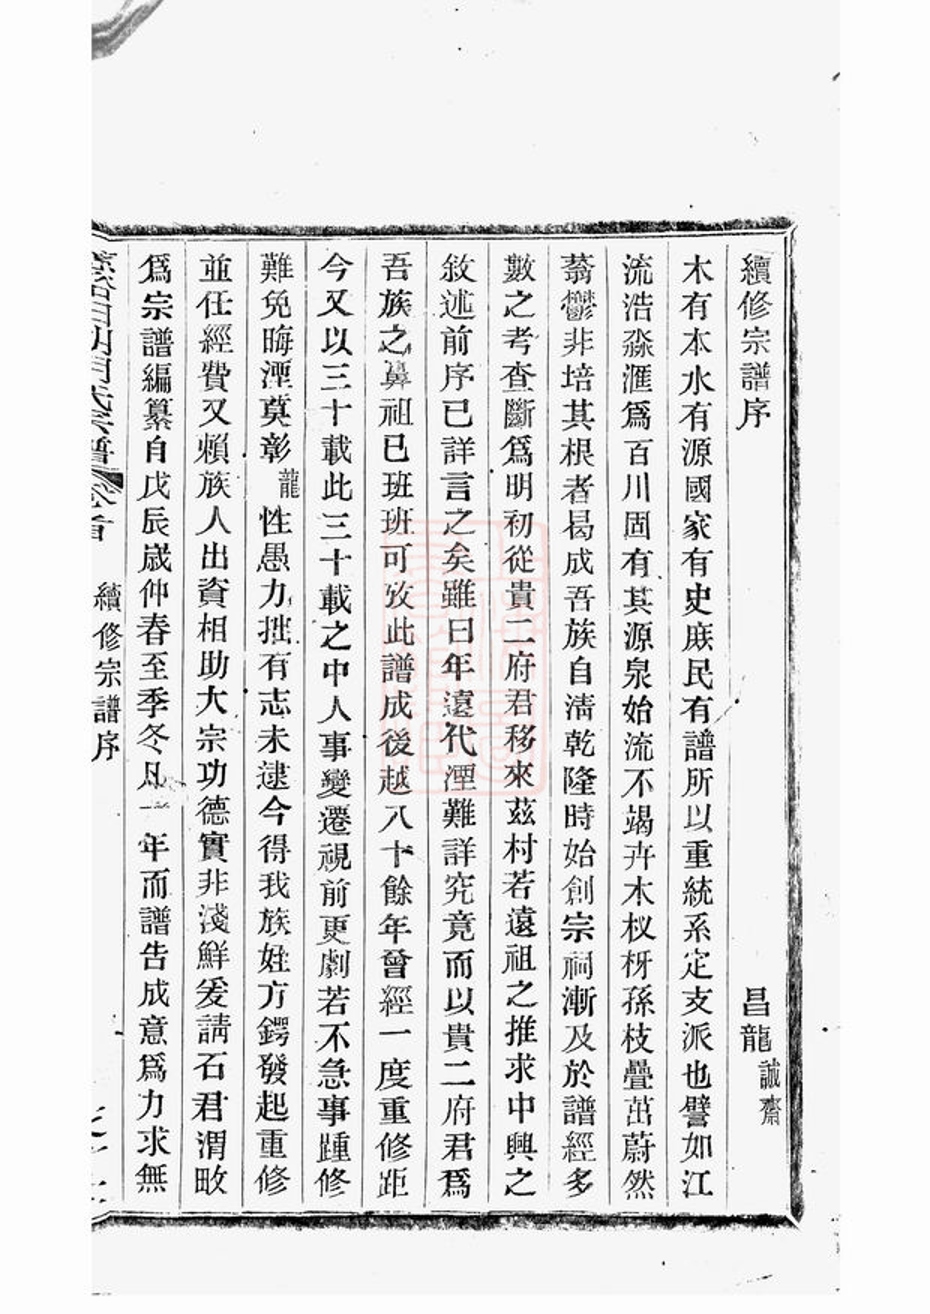 續修宗譜序 昌龍誠齋
木有本水有源國家有史庶民有譜所以重統系定支派也譬如江
流浩淼滙爲百川固有其源泉始流不竭卉木杈枒孫枝疊茁蔚然
蓊鬱非培其根者曷成吾族自淸乾隆時始創宗祠漸及於譜經多
數之考查斷爲明初從貴二府君移來茲村若遠祖之推求中興之
敘述前序已詳言之矣雖曰年遠代湮難詳究竟而以貴二府君爲
吾族之鼻祖已班班可攷此譜成後越八十餘年曾經一度重修距
今又以三十載此三十載之中人事變遷視前更劇若不急事踵修
難免晦湮莫彰龍性愚力拙有志未逮今得我族姪方鍔發起重修
並任經費又賴族人出資相助大宗功德實非淺鮮爰請石君渭畋
爲宗譜編纂自戊辰嵗仲春至季冬凡一年而譜告成意爲力求無
氏宗譜 卷首 續修宗譜序